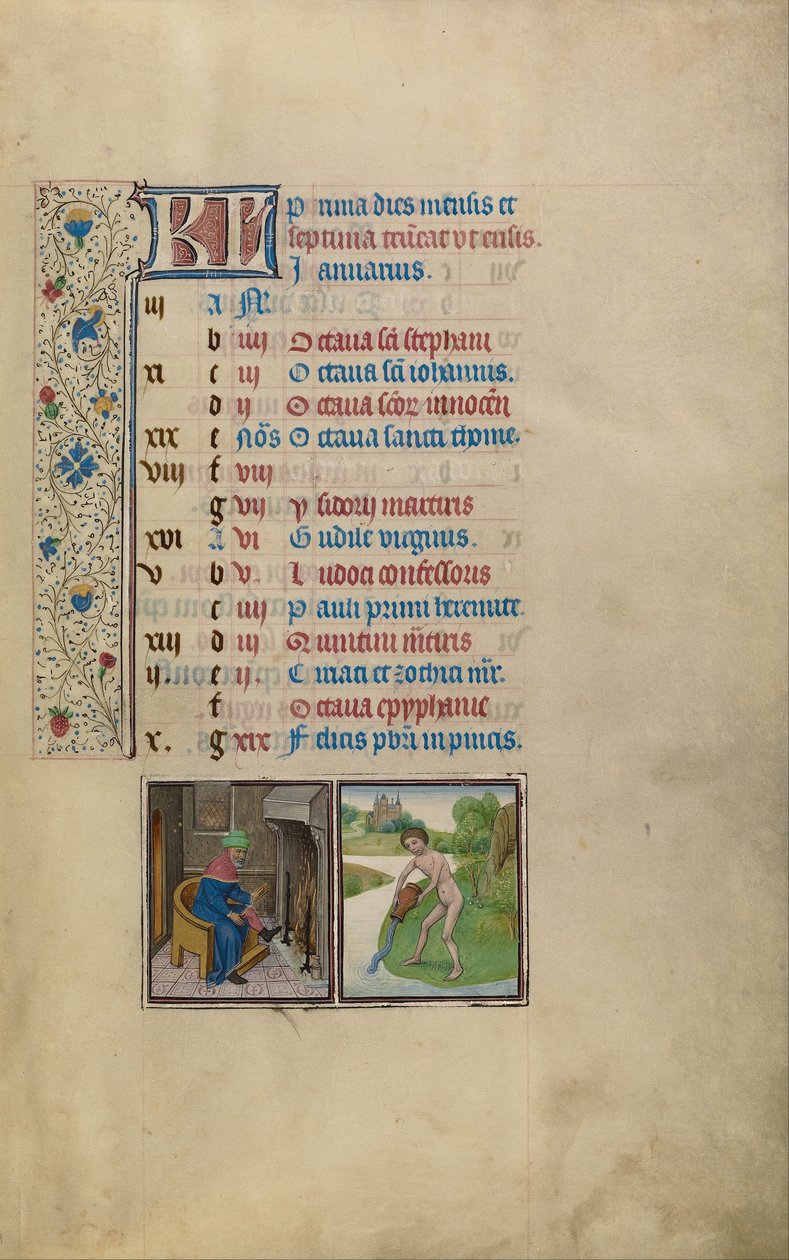 KL Prima dies mensis et
septima trucat vt ensis.
Januarius.
iij A
b iiij Octaua sci stephani
xi c iij Octaua sci iohannis.
d ij Octaua scor innocen
xix e Nōs Octaua sancti thome.
viij f viij
g vij ysidorij martiris
xvi A vi Gudile virginis.
v b v. Iudoci confessoris
c iiij Pauli primi heremite.
xiij d iij Quintini mr̄tiris
ij. e ij. Ciriaci et zothici mr̄.
f Octaua epyphanie
x. g xix Felicis pbrī in pincis.